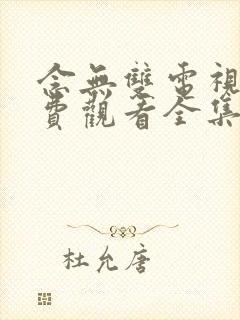 念無雙電視
費觀看全集
杜允唐